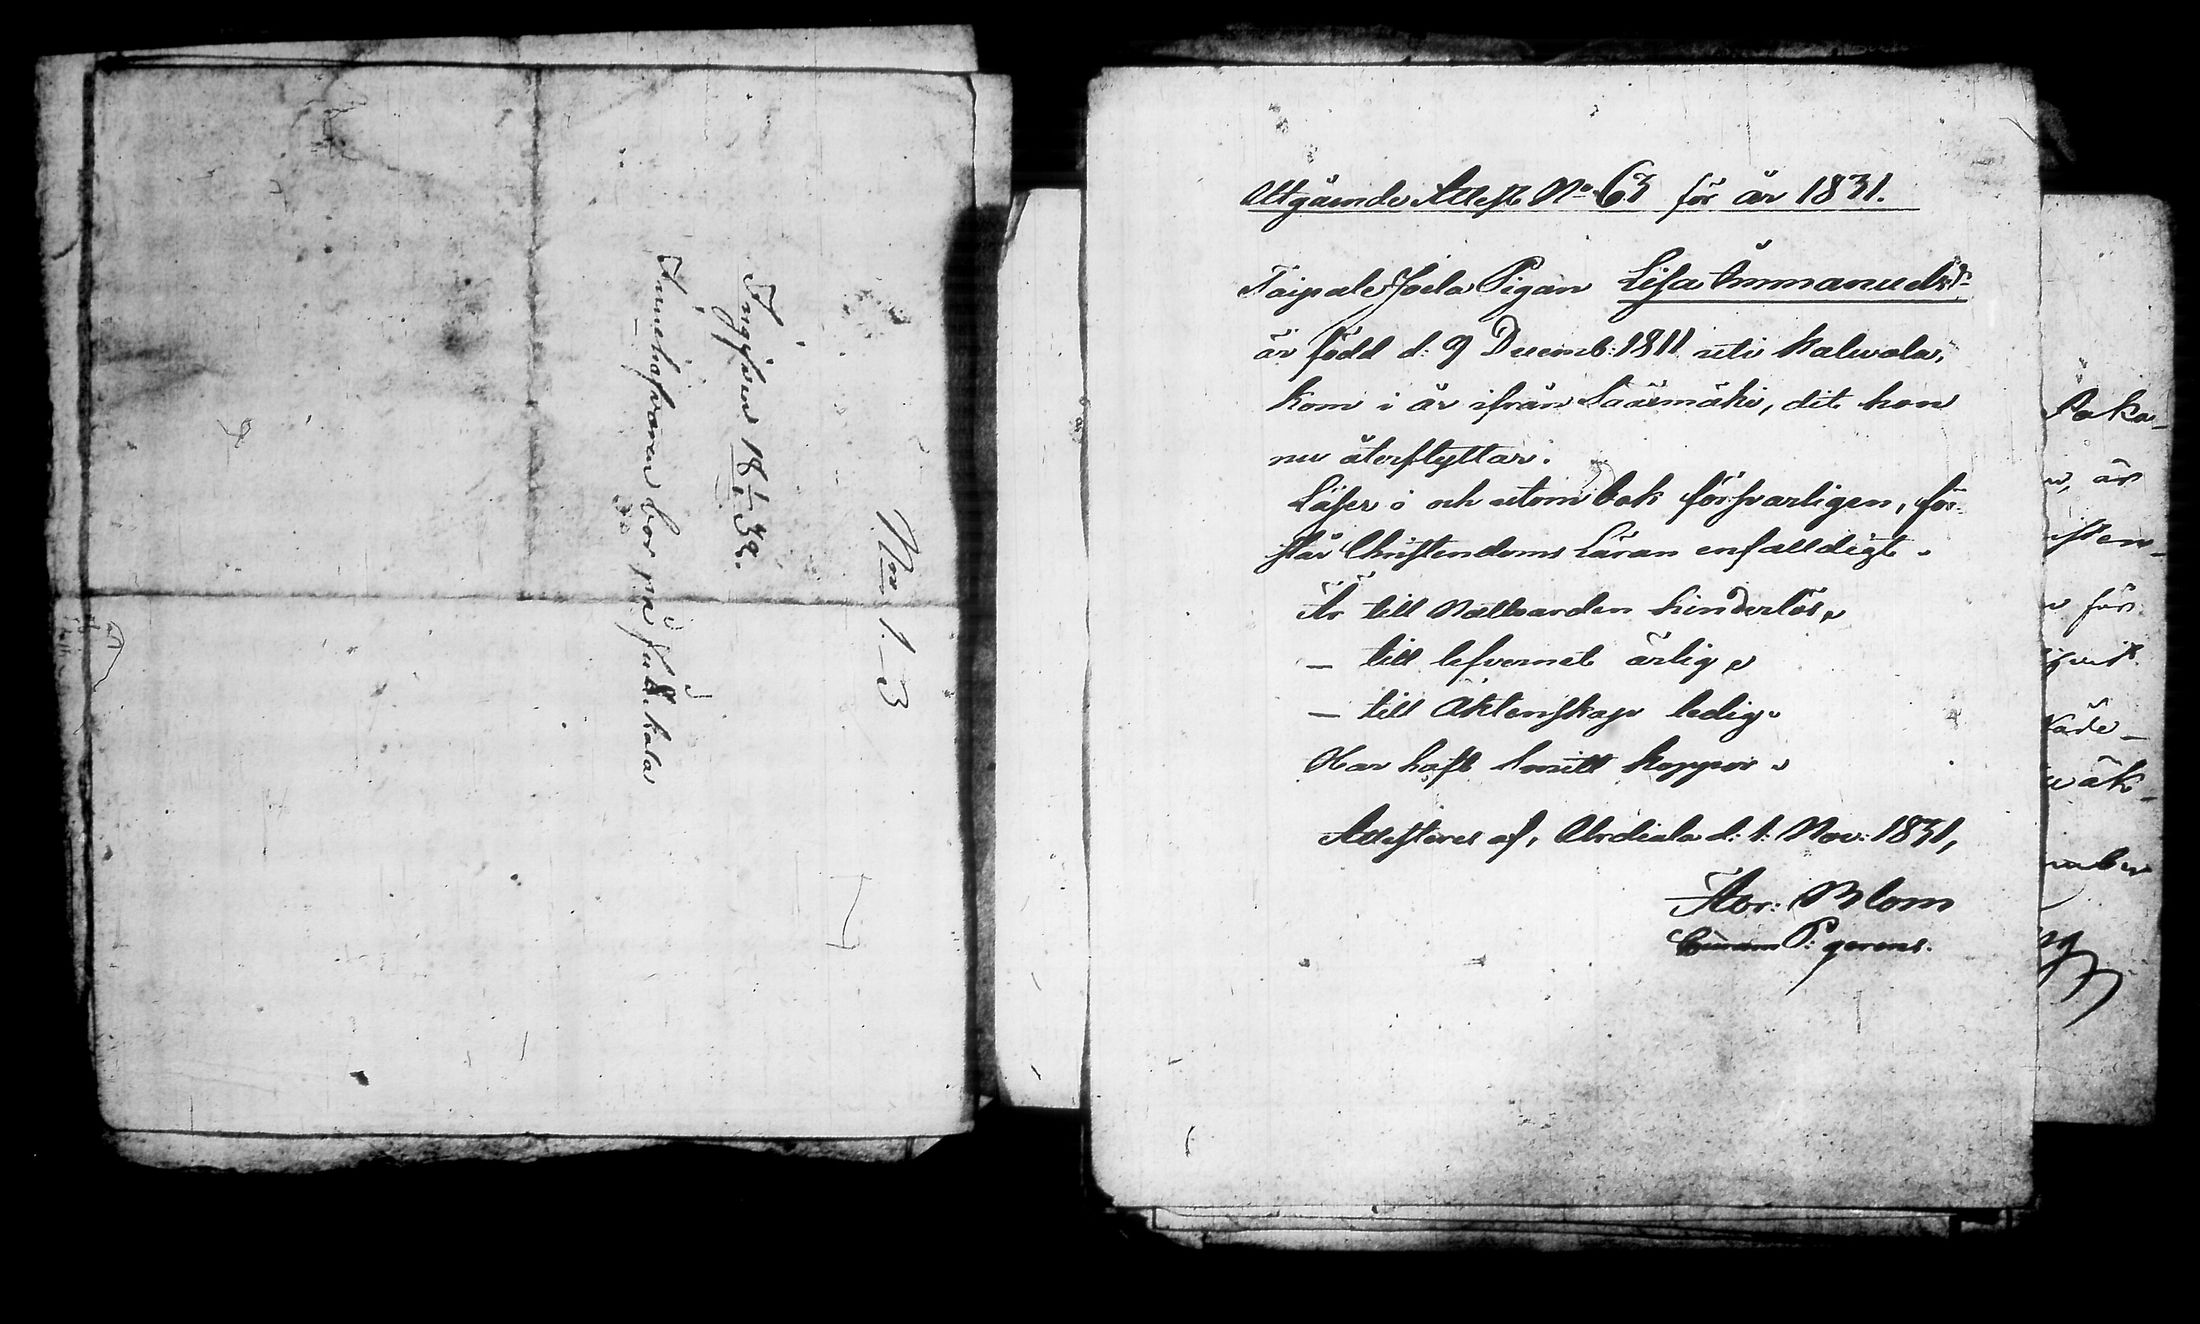 No 1.3
Ingifven 18 1/1 32.
Innehafvaren bor på Jutikala
Utgående Attest No 63 för år 1831.
Taipale Joela Pigan Lisa Emmanuelsdr
är född d: 9 Decemb: 1811 uti Kalwola,
kom i år ifrån Sääxmäki, dit hon
nu återflyttar.
Läser i och utom bok försvarligen, för-
står Christendoms Läran enfalldigt.
Är till Nattvarden hinderlös,
— till lefvernet ärlig,
— till Äktenskap ledig.
Har haft Smitt koppor.
Attesteras af, Urdiala d: 1: Nov: 1831,
Abr: Blom
P. gerens.
Paka-
är
sten-
för
mber